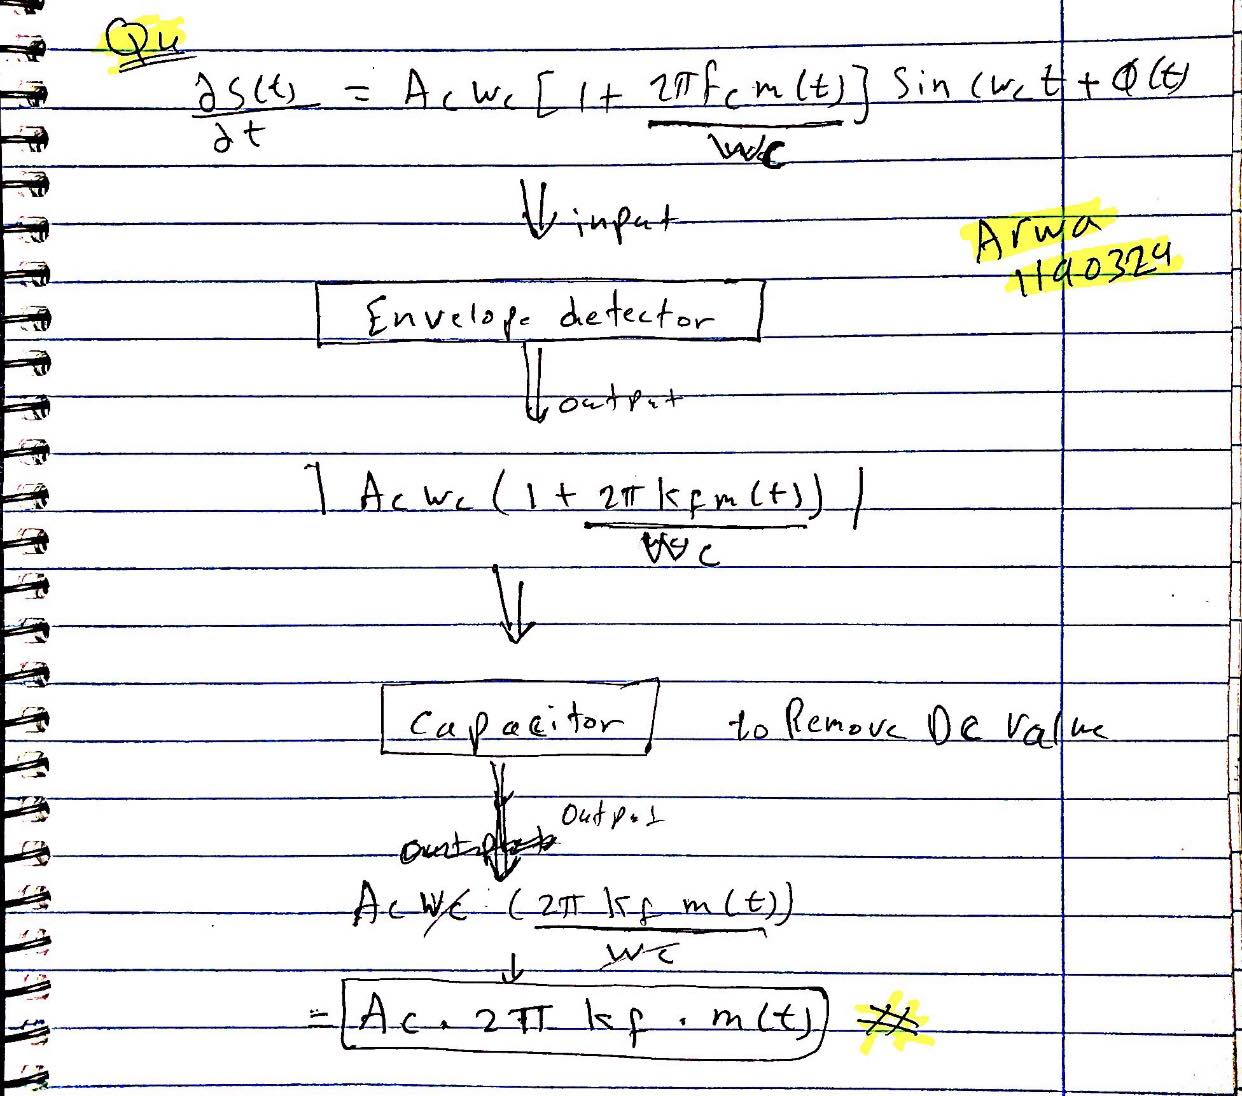 Qu
∂S(t)/∂t = Ac Wc [1 + 2πfc m(t)/Wc] Sin (Wc t + Φ(t)
input
Arwa
1190329
Envelope detector
output
| Ac Wc (1 + 2π kf m(t)/Wc) |
Capacitor to Remove DC Value
output
Ac Wc . (2π kf m(t))/Wc
= Ac . 2π kf . m(t)